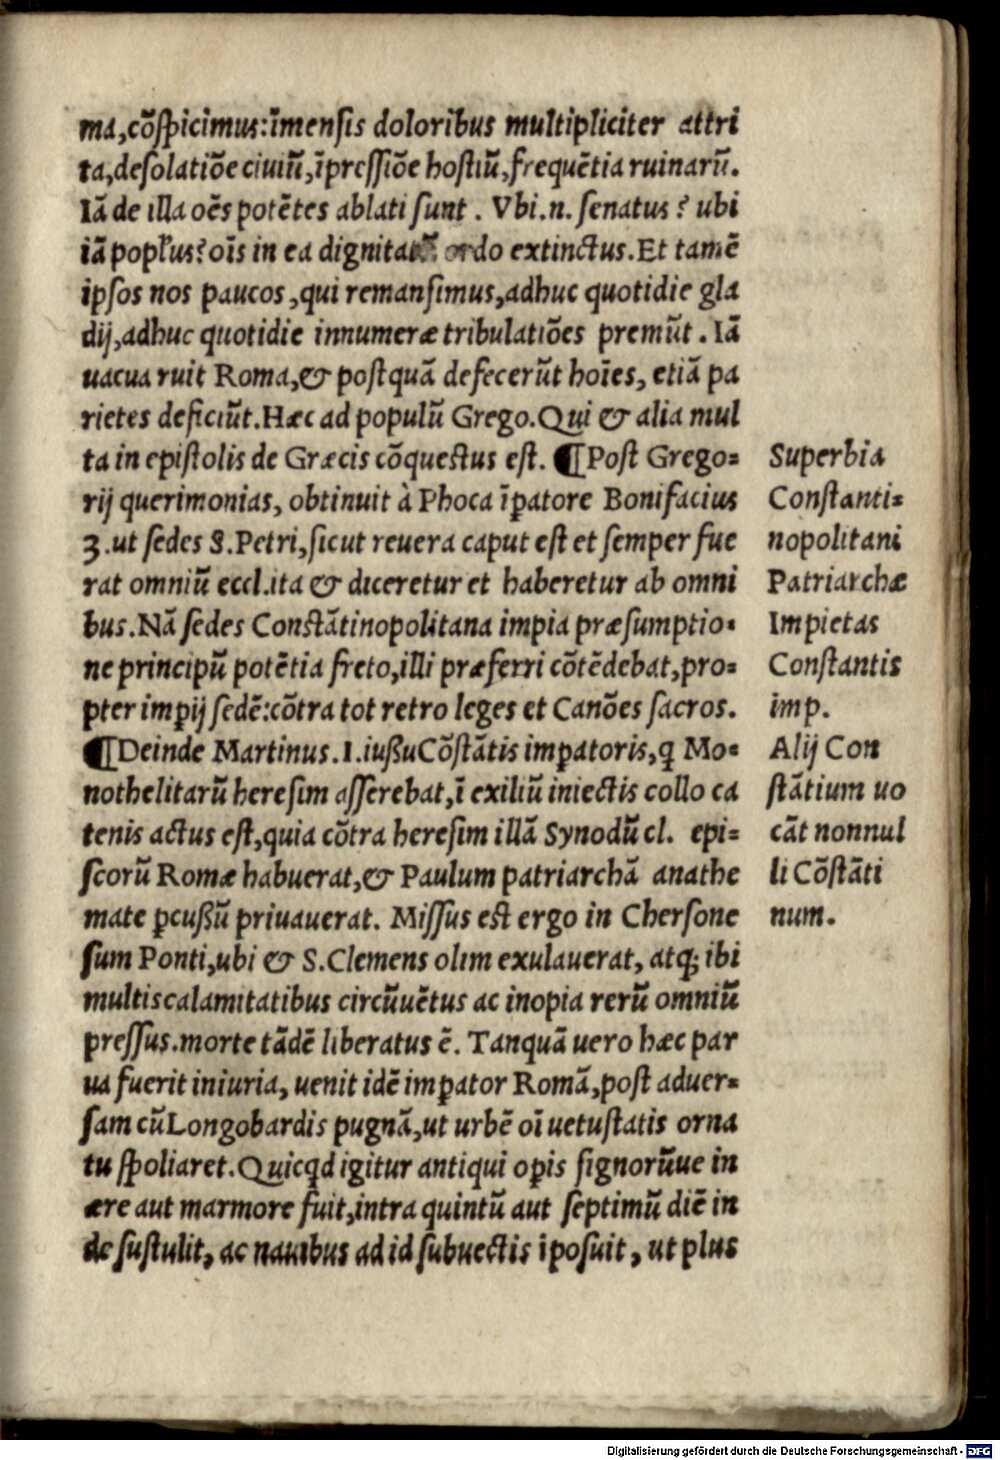 ma,cõſpicimus:ĩmenſis doloribus multipliciter attri
ta,deſolatiõe ciuiũ,ĩpreſſiõe hoſtiũ,frequẽtia ruinarũ.
Iã de illa oẽs potẽtes ablati ſunt . Vbi.n. ſenatus? ubi
iã popl'us? oĩs in ea dignitatũ ordo extinctus.Et tamẽ
ipſos nos paucos,qui remanſimus,adhuc quotidie gla
dij,adhuc quotidie innumeræ tribulatiões premũt . Iã
uacua ruit Roma,& poſtquã defecerũt hoĩes, etiã pa
rietes deficiũt.Hæc ad populũ Grego.Qui & alia mul
ta in epiſtolis de Græcis cõqueſtus eſt. ¶Poſt Grego=
rij querimonias, obtinuit à Phoca ĩp̱atore Bonifacius
3.ut ſedes S.Petri,ſicut reuera caput eſt et ſemper fue
rat omniũ eccl.ita & diceretur et haberetur ab omni
bus.Nã ſedes Conſtãtinopolitana impia præſumptio=
ne principũ potẽtia freto,illi præferri cõtẽdebat,pro=
pter imp̱ij ſedẽ:cõtra tot retro leges et Canões ſacros.
¶Deinde Martinus.I.iuſſu Cõſtãtis imp̱atoris,q̱ Mo=
nothelitarũ hereſim aſſerebat,ĩ exiliũ iniectis collo ca
tenis actus eſt,quia cõtra hereſim illã Synodũ cl. epi=
ſcorũ Romæ habuerat,& Paulum patriarchã anathe
mate p̱cuſſũ priuauerat. Miſſus eſt ergo in Cherſone
ſum Ponti,ubi & S.Clemens olim exulauerat, atq; ibi
multis calamitatibus circũuẽtus ac inopia rerũ omniũ
preſſus.morte tãdẽ liberatus ẽ. Tanquã uero hæc par
ua fuerit iniuria, uenit idẽ imp̱ator Romã,poſt aduer=
ſam cũ Longobardis pugnã,ut urbẽ oĩ uetuſtatis orna
tu ſpoliaret.Quicq̱d igitur antiqui op̱is ſignorũue in
ære aut marmore fuit,intra quintũ aut ſeptimũ diẽ in
de ſuſtulit, ac nauibus ad id ſubuectis ĩpoſuit, ut plus
Superbia
Conſtanti=
nopolitani
Patriarchæ
Impietas
Conſtantis
imp.
Alij Con
ſtãtium uo
cãt nonnul
li Cõſtãti
num.
Digitalisierung gefördert durch die Deutsche Forschungsgemeinschaft - DFG